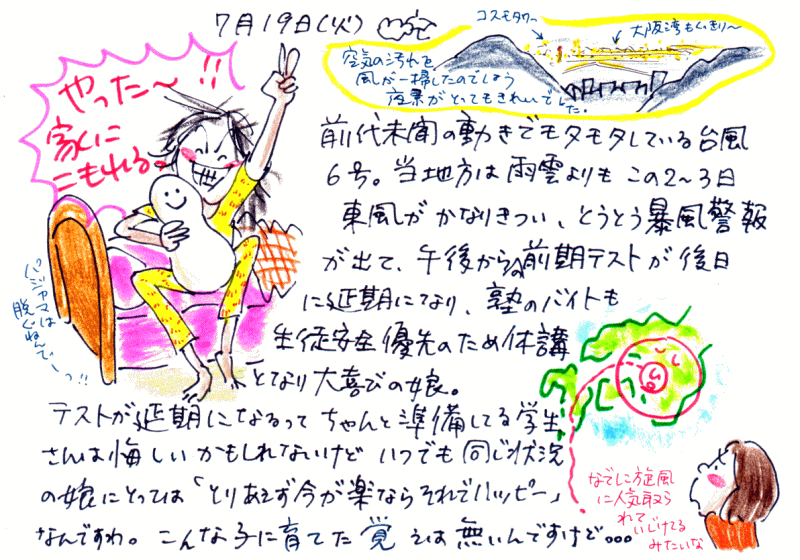 7月19日(火)
コスモタワー
大阪湾もくっきり〜
空気の汚れを
風が一掃したのでしょう
夜景がとってもきれいでした.
やった〜!!
家に
こもれる。
パジャマは
脱ぐねんでーっ!!
前代未聞の動きでモタモタしている台風
6号。当地方は雨雲よりもこの2〜3日
東風がかなりきつい、とうとう暴風警報
が出て、午後からの前期テストが後日
に延期になり、塾のバイトも
生徒安全優先のため休講
となり大喜びの娘。
テストが延期になるってちゃんと準備してる学生
さんは悔しいかもしれないけどいつでも同じ状況
の娘にとっては「とりあえず今が楽ならそれでハッピー」
なんですわ。こんな子に育てた覚えは無いんですけど...
なでしこ旋風
に人気取ら
れて...いじけてる
みたいな